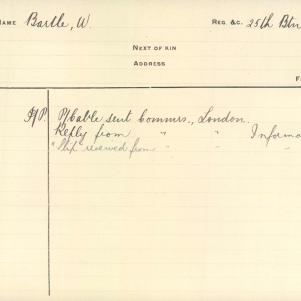 NAME Bartle, W. REG. &C. 25th Btn
NEXT OF KIN
ADDRESS
F
I/P. P/Cable sent Commrs., London.
Reply from " " Informa
"Slip" received from " " "